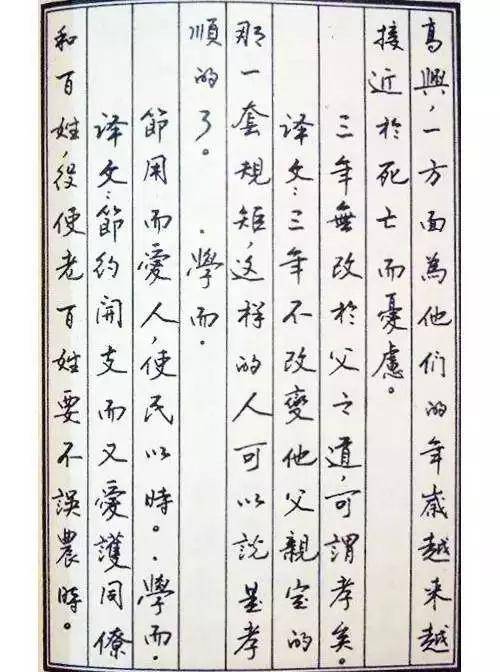 高興，一方面為他們的年歲越来越
接近於死亡而憂慮。
三年無改於父之道，可謂孝矣。
译文：三年不改變他父親定的
那一套規矩，这样的人可以說是孝
順的了。·學而·
節用而愛人，使民以時。·學而·
译文：節約開支而又愛護同僚
和百姓，役使老百姓要不誤農時。